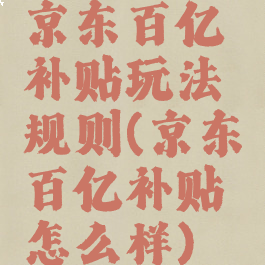 京东百亿
补贴玩法
规则(京东
百亿补贴
怎么样)